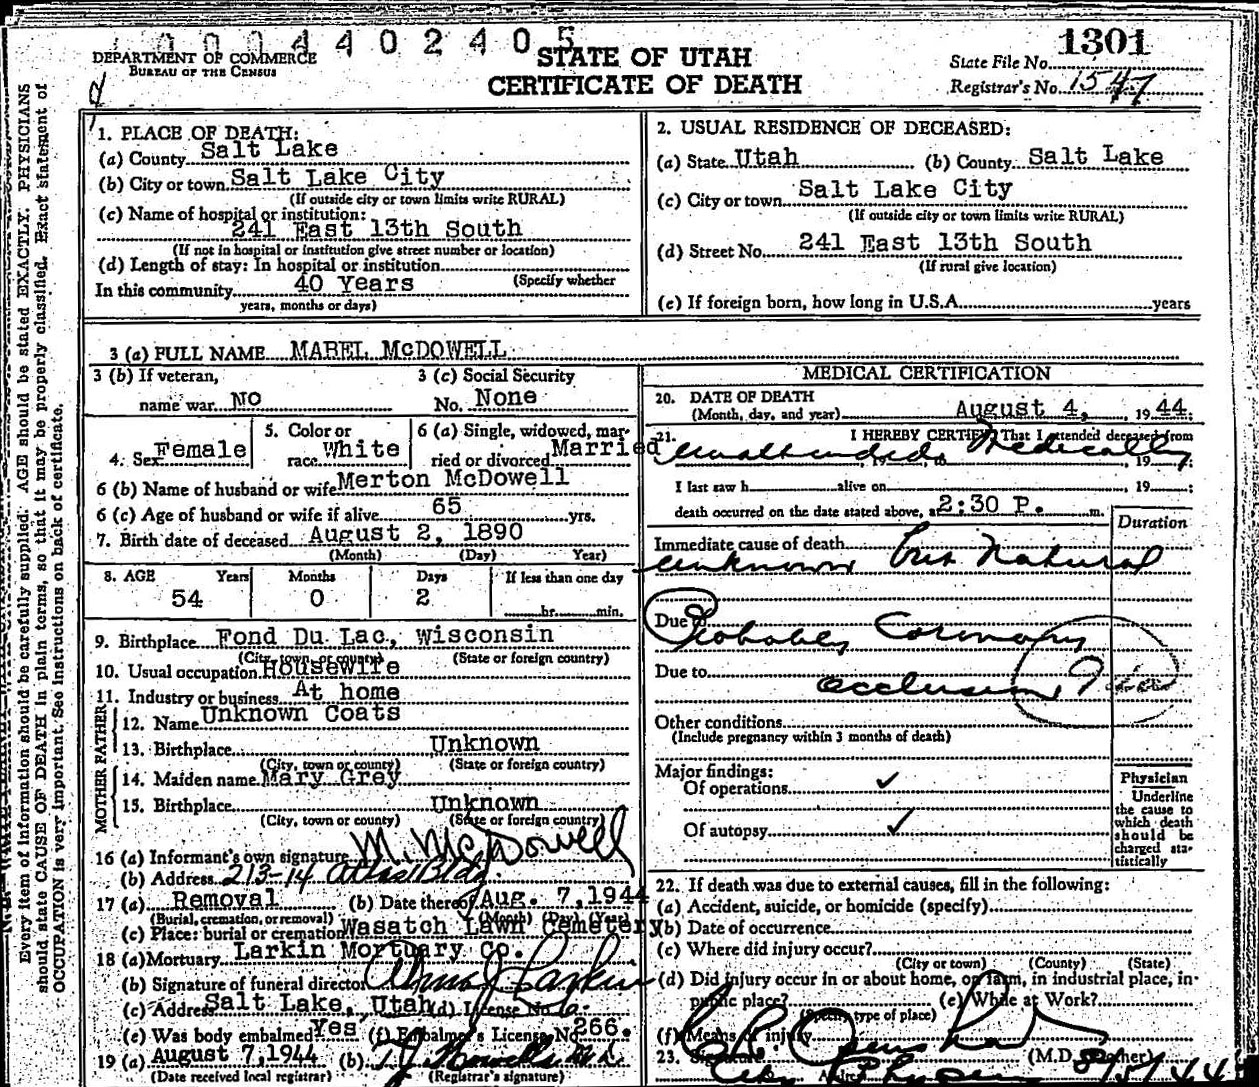 0004402405
DEPARTMENT OF COMMERCE
BUREAU OF THE CENSUS
STATE OF UTAH
CERTIFICATE OF DEATH
State File No. 1301
Registrar's No. 1547
Every item of information should be carefully supplied. AGE should be stated EXACTLY. PHYSICIANS
should state CAUSE OF DEATH in plain terms, so that it may be properly classified. Exact statement of
OCCUPATION is very important. See instructions on back of certificate.
1. PLACE OF DEATH:
(a) County Salt Lake
(b) City or town Salt Lake City
(If outside city or town limits write RURAL)
(c) Name of hospital or institution:
241 East 13th South
(If not in hospital or institution give street number or location)
(d) Length of stay: In hospital or institution
(Specify whether
In this community 40 Years
years, months or days)
2. USUAL RESIDENCE OF DECEASED:
(a) State Utah (b) County Salt Lake
(c) City or town Salt Lake City
(If outside city or town limits write RURAL)
(d) Street No. 241 East 13th South
(If rural give location)
(e) If foreign born, how long in U.S.A. years
3 (a) FULL NAME MABEL McDOWELL
3 (b) If veteran,
name war NO
3 (c) Social Security
No. None
4. Sex Female
5. Color or
race White
6 (a) Single, widowed, mar-
ried or divorced Married
6 (b) Name of husband or wife Merton McDowell
6 (c) Age of husband or wife if alive 65 yrs.
7. Birth date of deceased August 2, 1890
(Month) (Day) Year)
8. AGE Years Months Days If less than one day
54 0 2 hr. min.
9. Birthplace Fond Du Lac, Wisconsin
(City, town or county) (State or foreign country)
10. Usual occupation Housewife
11. Industry or business At home
FATHER
12. Name Unknown Coats
13. Birthplace Unknown
(City, town or county) (State or foreign country)
MOTHER
14. Maiden name Mary Grey
15. Birthplace Unknown
(City, town or county) (State or foreign country)
16 (a) Informant's own signature M. McDowell
(b) Address 213-14 Atlas Bldg.
17 (a) Removal (b) Date thereof Aug. 7, 1944
(Burial, cremation, or removal) (Month) (Day) (Year)
(c) Place: burial or cremation Wasatch Lawn Cemetery
18 (a) Mortuary Larkin Mortuary Co.
(b) Signature of funeral director Larkin
(c) Address Salt Lake, Utah (d) License No. 6
(e) Was body embalmed? Yes (f) Embalmer's License No. 266.
19 (a) August 7, 1944 (b)
(Date received local registrar) (Registrar's signature)
MEDICAL CERTIFICATION
20. DATE OF DEATH
(Month, day, and year) August 4, 1944
21. I HEREBY CERTIFY That I attended deceased from
unattended Medically, 19
I last saw h alive on , 19 ;
death occurred on the date stated above, at 2:30 P. m.
Duration
Immediate cause of death
unknown but Natural
Due to Probably Coronary
Due to occlusion
Other conditions
(Include pregnancy within 3 months of death)
Major findings:
Of operations ✓
Of autopsy ✓
Physician
Underline
the cause to
which death
should be
charged sta-
tistically
22. If death was due to external causes, fill in the following:
(a) Accident, suicide, or homicide (specify)
(b) Date of occurrence
(c) Where did injury occur?
(City or town) (County) (State)
(d) Did injury occur in or about home, on farm, in industrial place, in
public place? (e) While at Work?
(Specify type of place)
(f) Means of injury
23. Signature (M.D. or other)
8/5/44